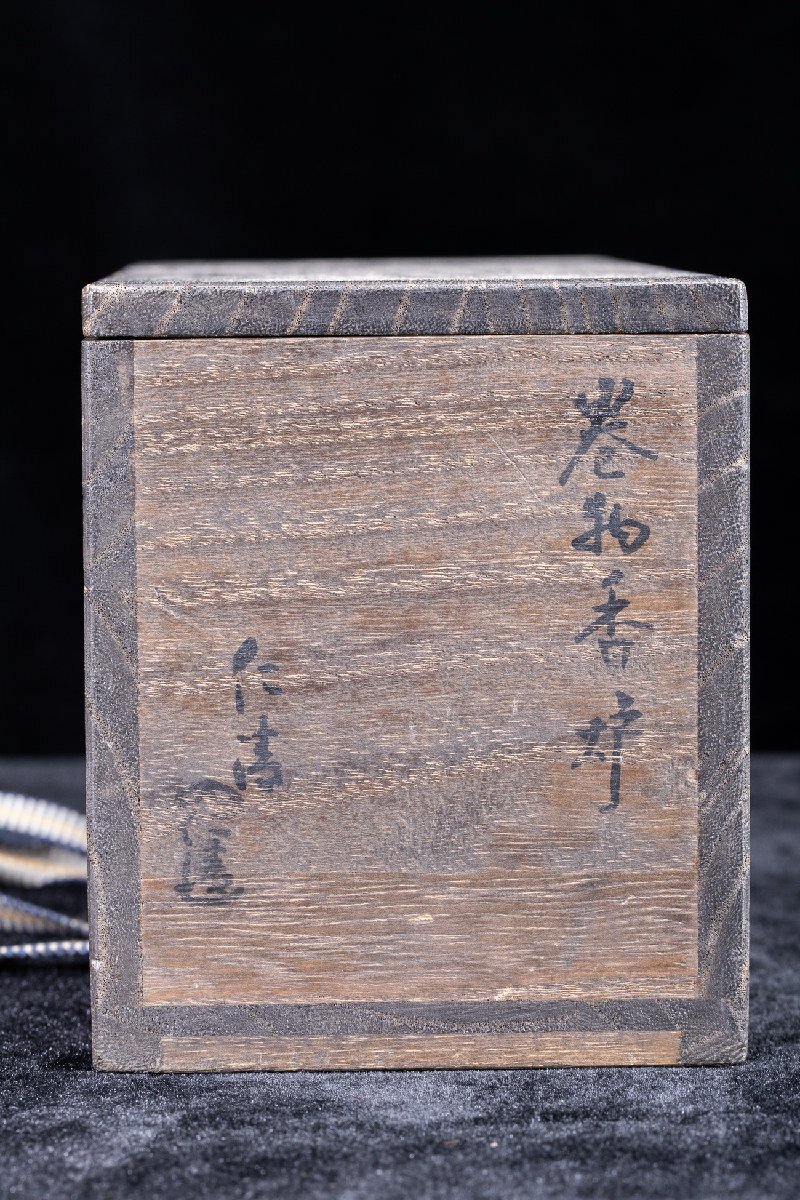 巻物香炉
仁清